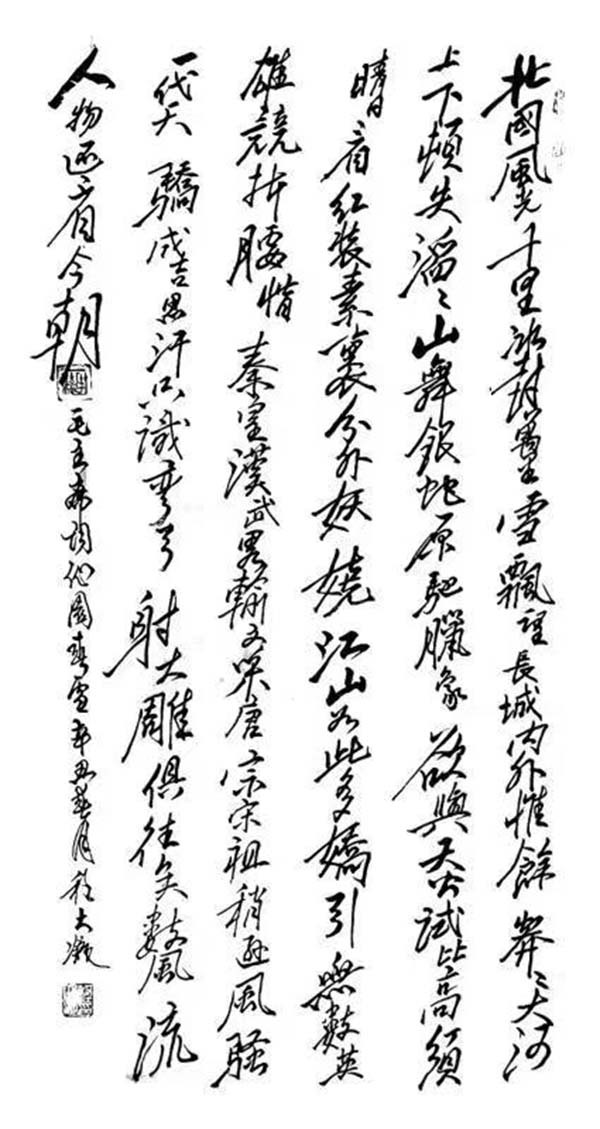 北國風光千里冰封萬里雪飄望長城内外惟餘莽〻大河
上下頓失滔〻山舞銀蛇原馳臘象欲與天公試比高須
晴日看紅裝素裹分外妖嬈江山如此多嬌引無數英
雄競折腰惜秦皇漢武畧輸文采唐宗宋祖稍遜風騷
一代天驕成吉思汗只識彎弓射大雕俱往矣數風流
人物還看今朝
毛主席詞沁園春雪